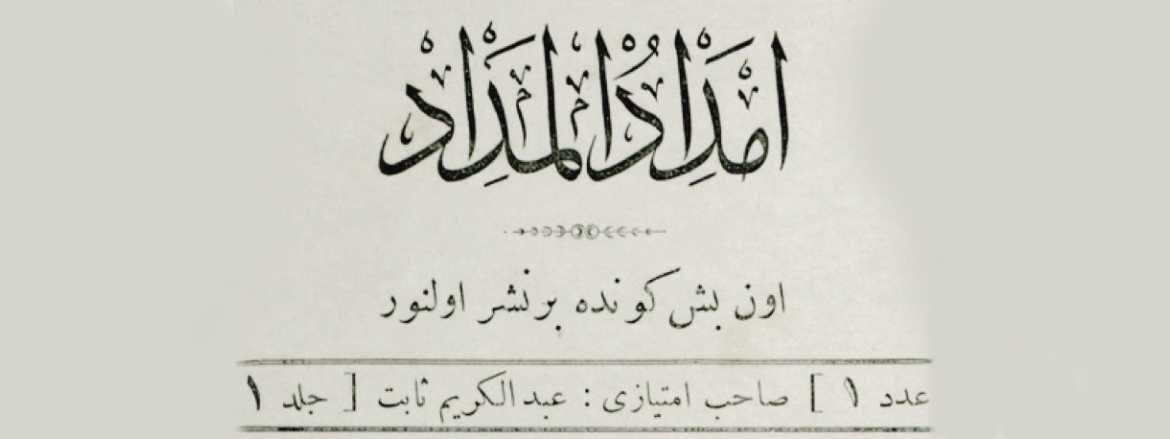 امدادُ المداد
اون بش كونده بر نشر اولنور
عدد ١ ] صاحب امتيازى : عبد الكريم ثابت [ جلد ١